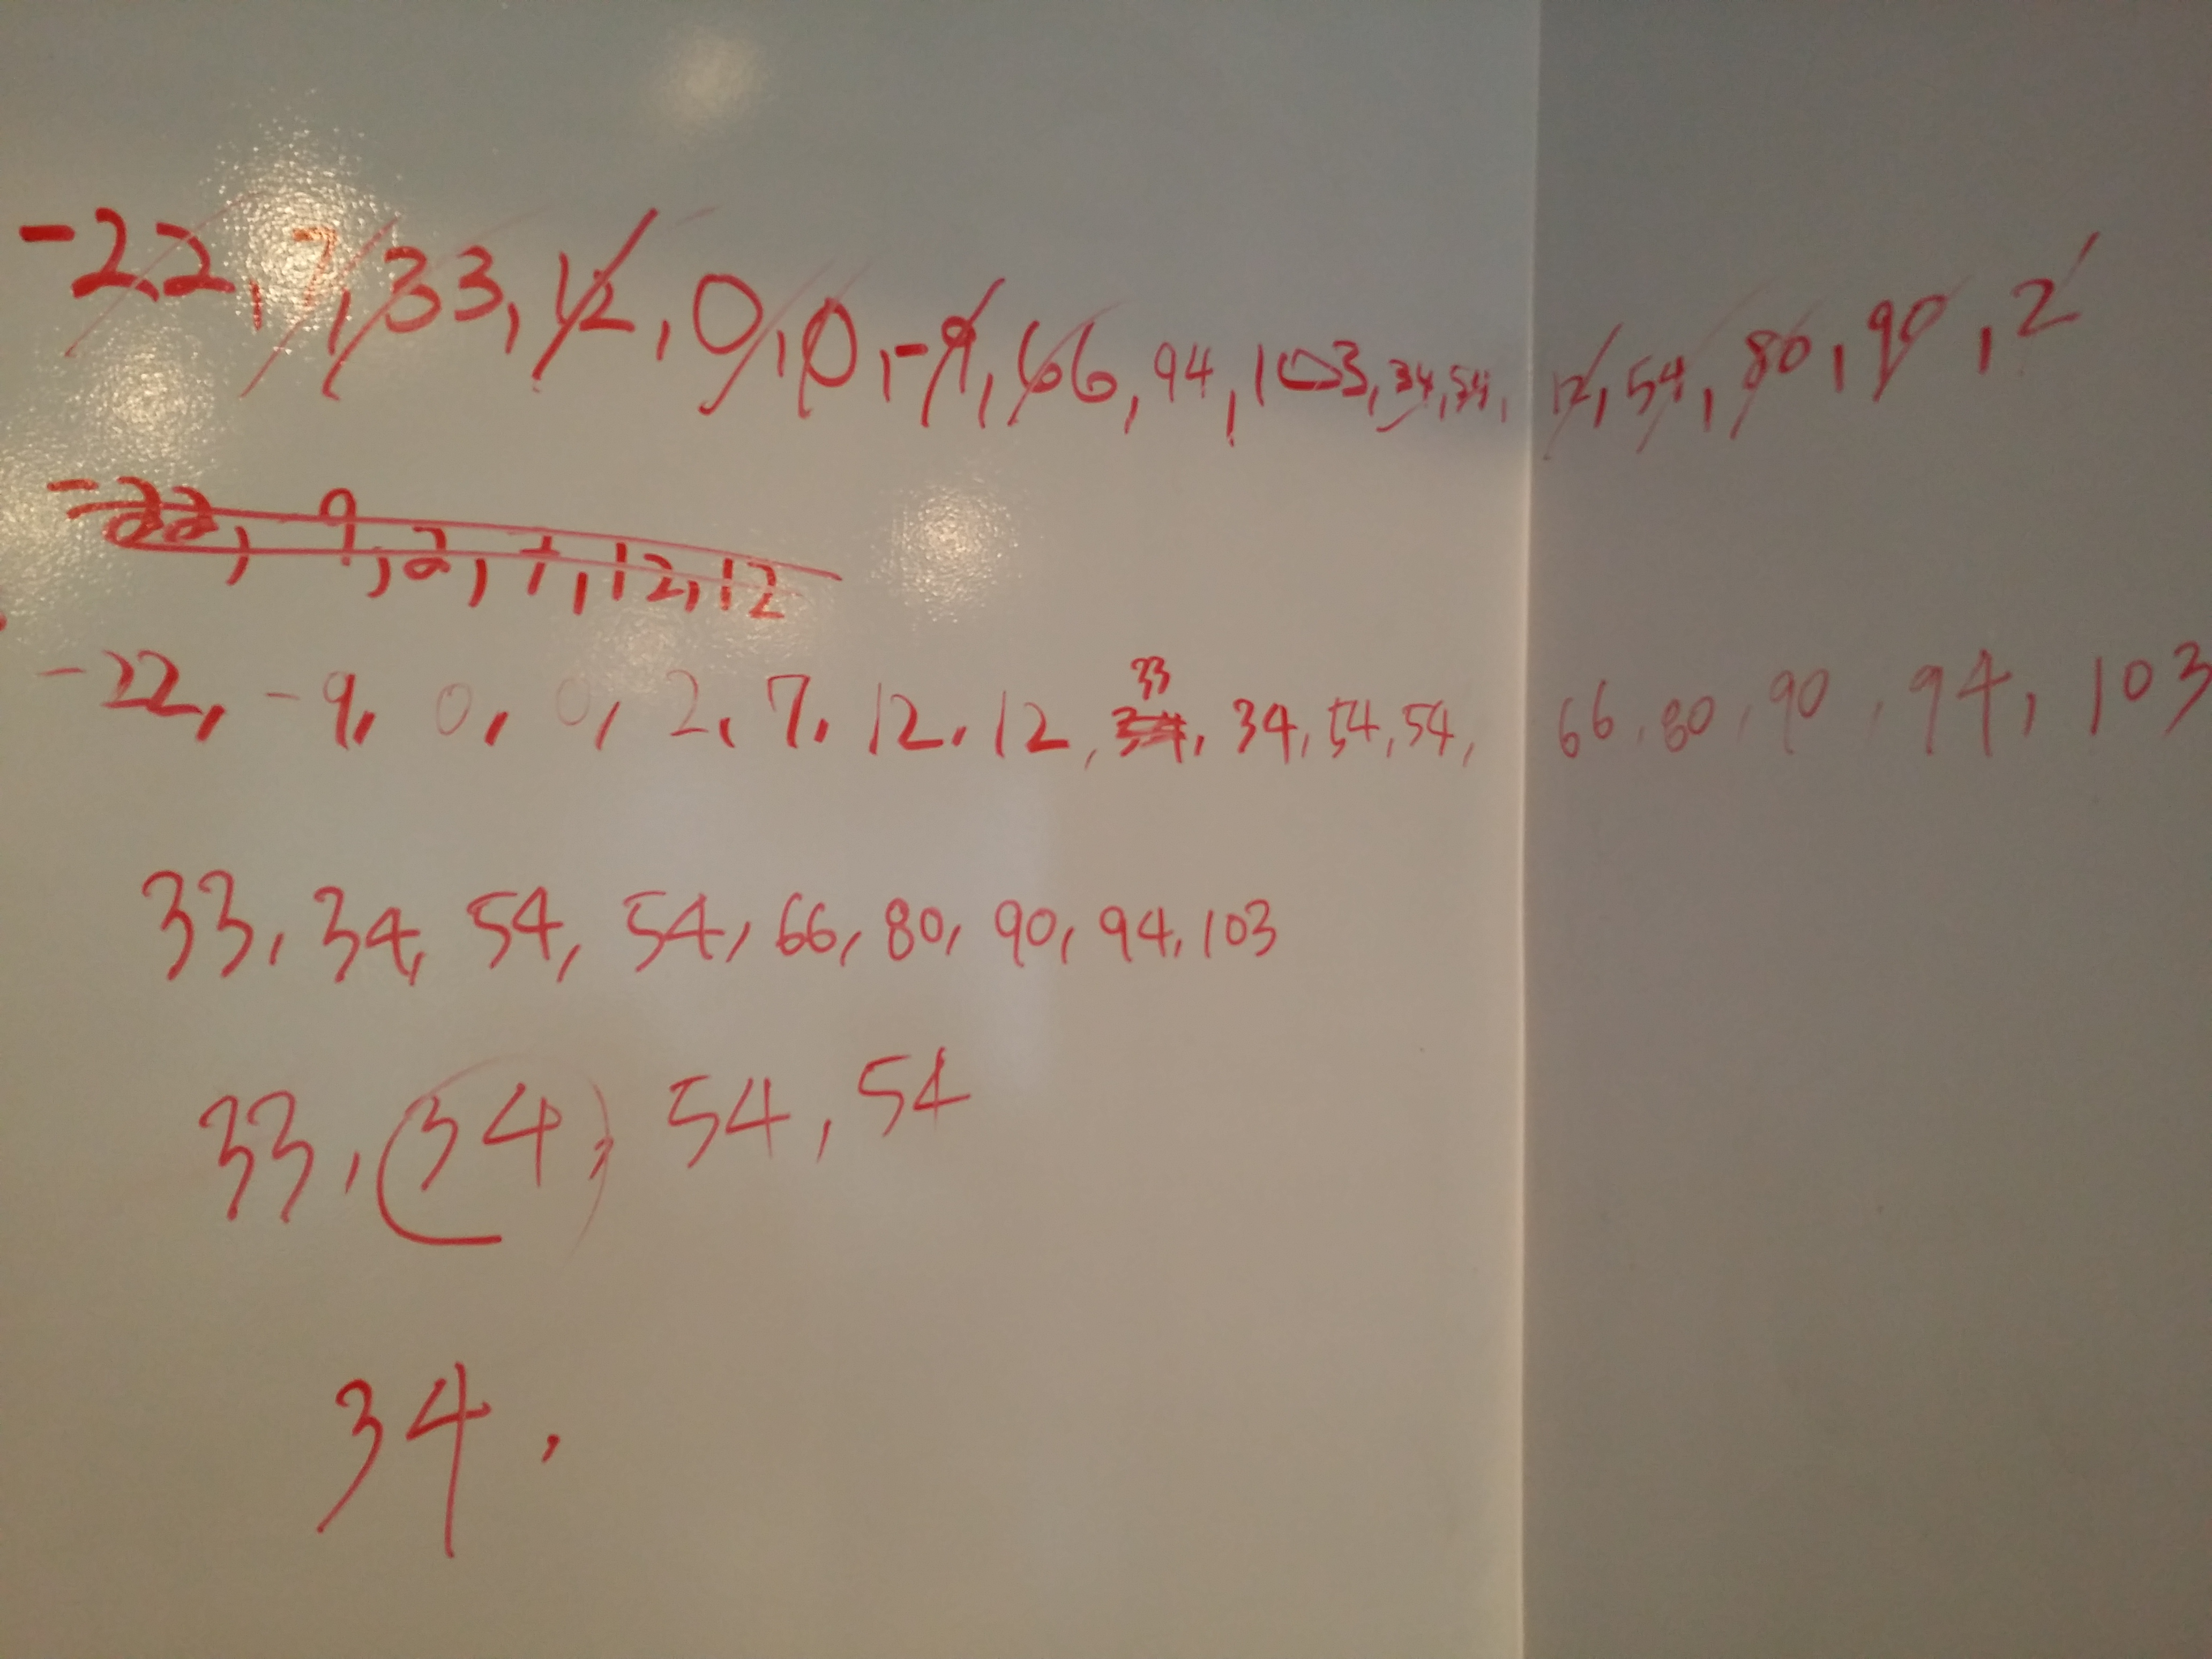 -22, 7, 33, 12, 0, 0, -9, 66, 94, 103, 34, 54, 12, 54, 80, 90, 2
-22, -9, 2, 7, 12, 12
33
-22, -9, 0, 0, 2, 7, 12, 12, 34, 34, 54, 54, 66, 80, 90, 94, 103
33, 34, 54, 54, 66, 80, 90, 94, 103
33, 34, 54, 54
34.